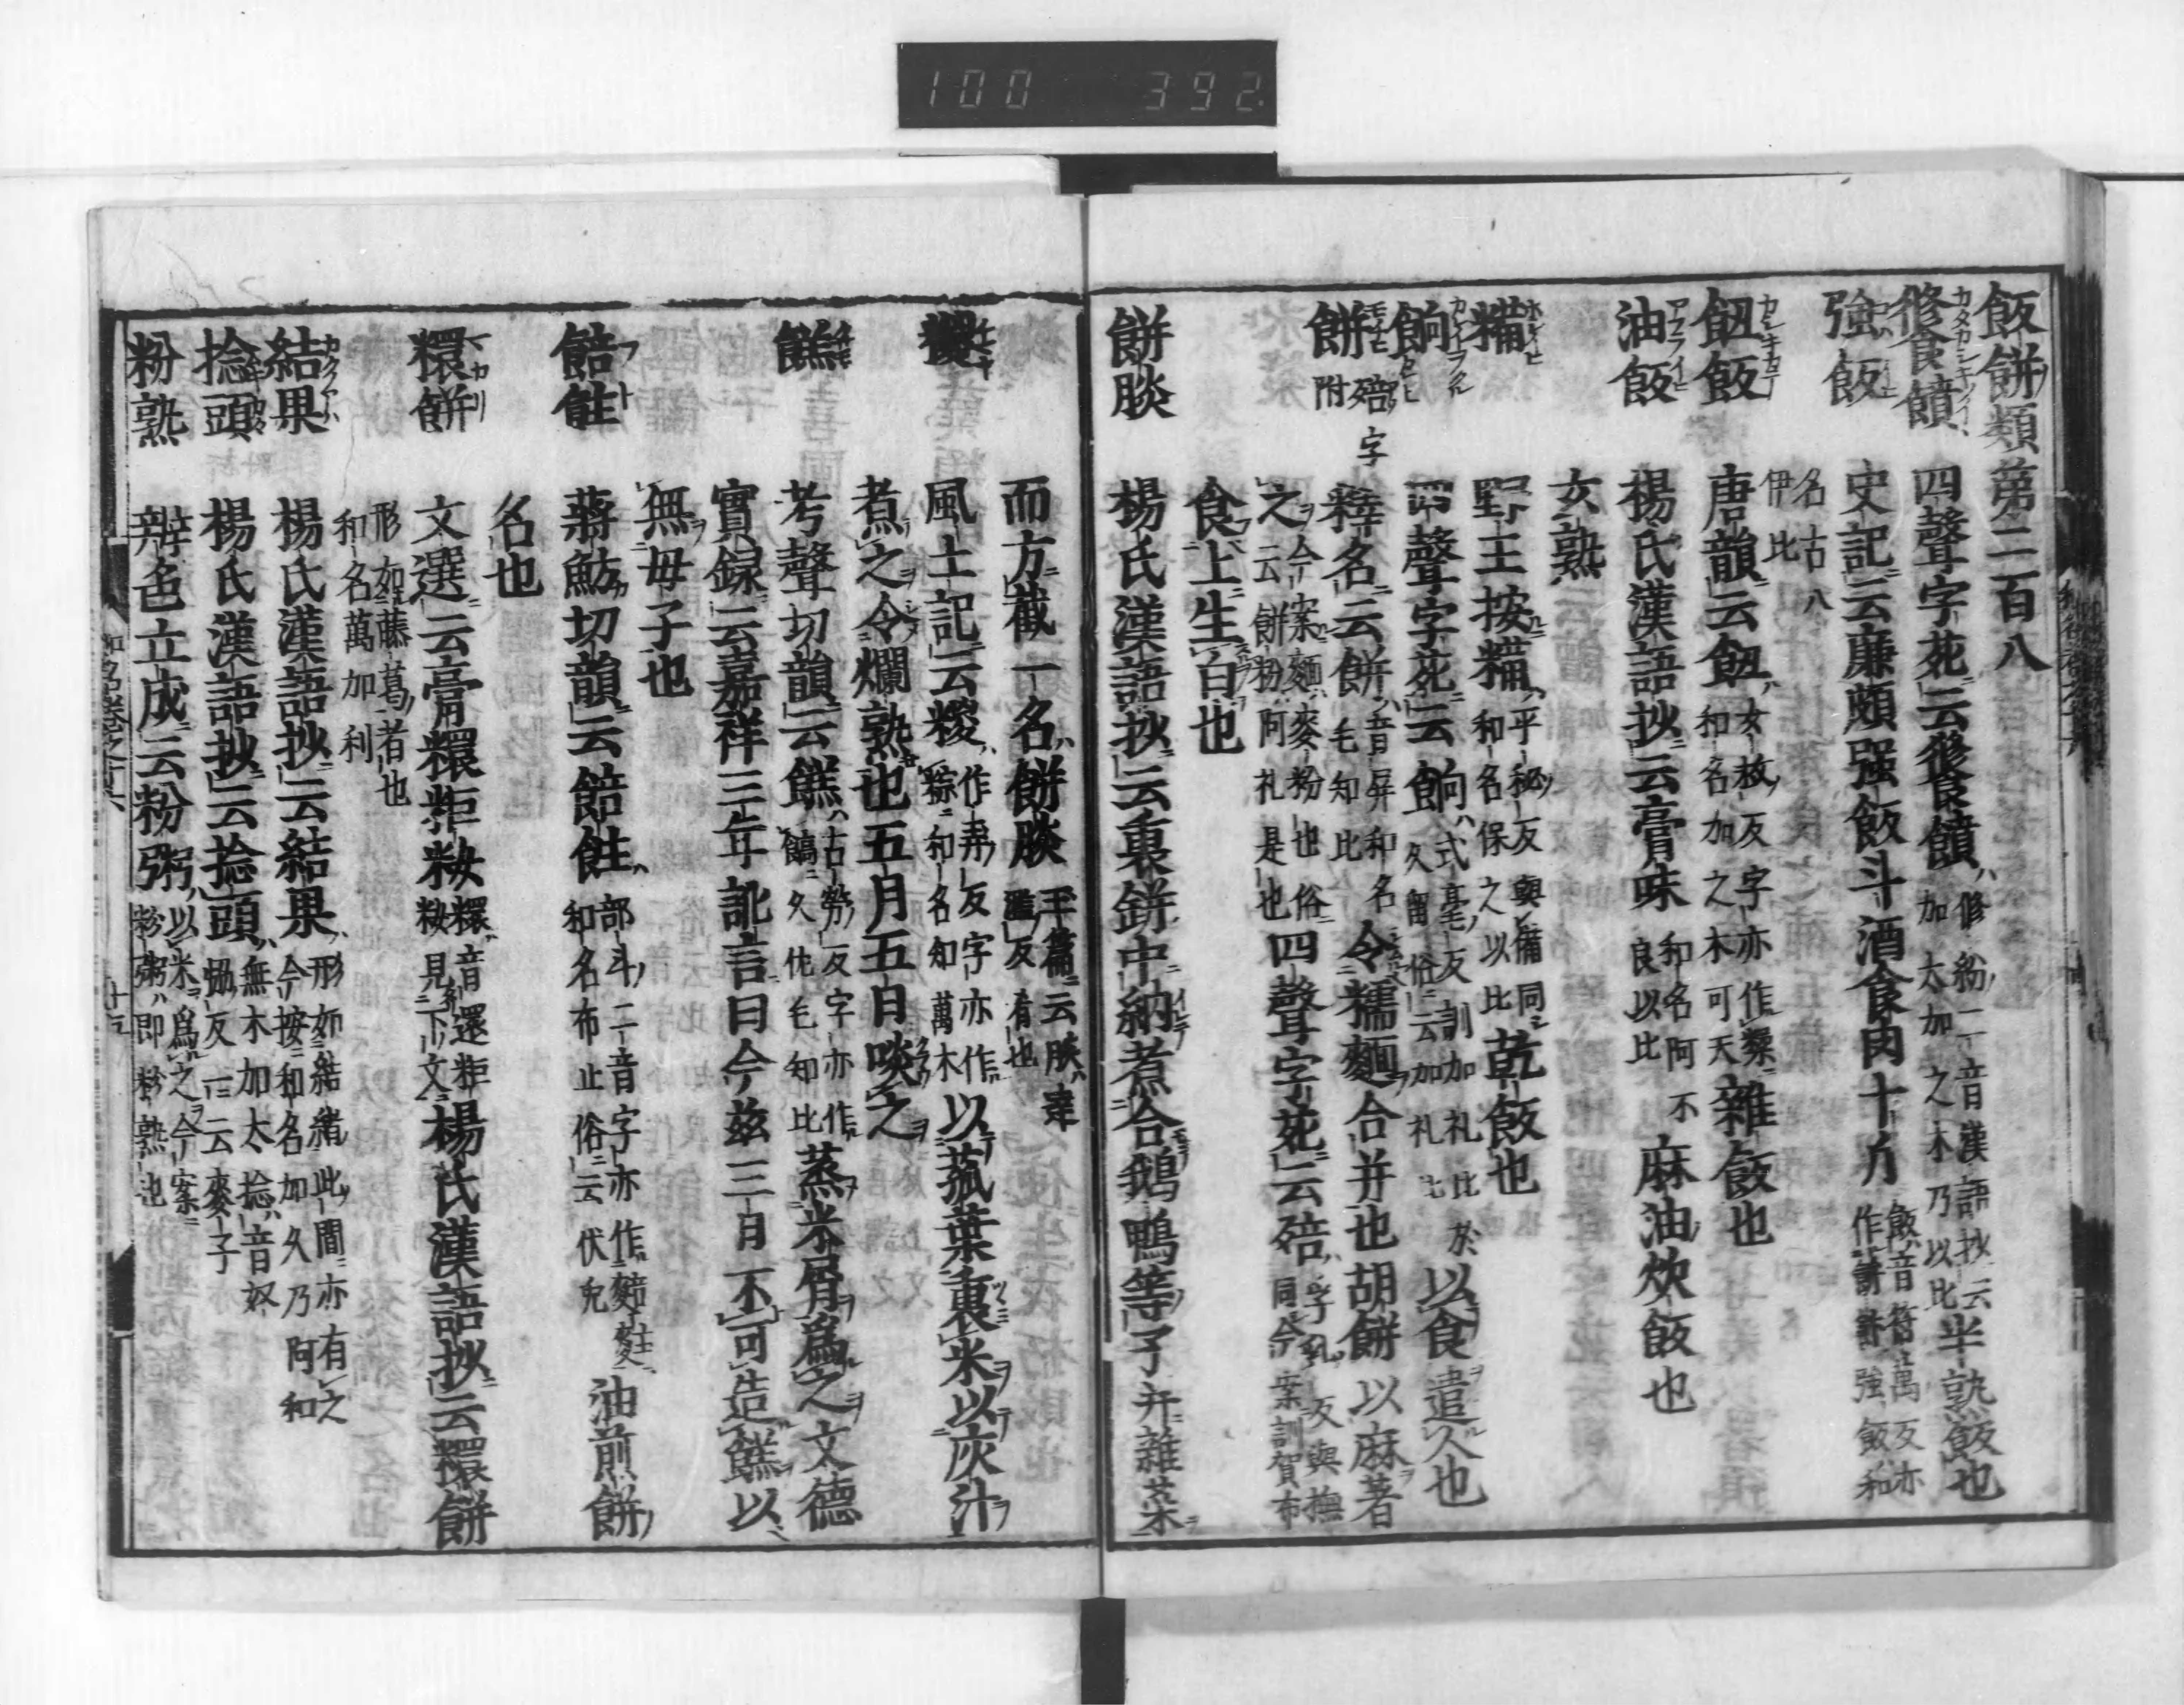 100 392
飯餅類第二百八
餐饙 四聲字苑云餐饙 修紛二音漢語抄云半熟飯也
加太加之木乃以比
強飯 史記云廉頗强飯斗酒食肉十斤 飯音符萬反亦作𩚳餅強飯和
名古八
伊比
䬦飯 唐韻云䬦 女救反字亦作糅 雜飯也
和名加之木可天
油飯 楊氏漢語抄云膏味 和名阿不 麻油炊飯也
良以比
玄熟
糒 野王按糒 平秘反與䊩同 乾飯也
和名保之以比
餉 四聲字苑云餉 式亮反訓加礼比於 以食遣人也
久留俗云加礼比
餅 䭃字附 釋名云餅 音屏和名 令糯麵合并也胡餅以麻著
毛知比
之 今案麵麥粉也俗 四聲字苑云䭃 孚乳反與撫
云餅粉阿礼是也 同今案訓賀布
食上生白也
餅腅 楊氏漢語抄云裹餅中納煮合鵝鴨等子并雜菜
而方截一名餅腅 玉篇云腅達
濫反肴也
糉 風土記云糉 作弄反字亦作 以菰葉裹米以灰汁
粽和名知萬木
煮之令爛熟也五月五日啖之
餻 考聲切韻云餻 古勞反字亦作 蒸米屑爲之文德
餻久佐毛知比
實錄云嘉祥三年訛言曰今茲三日不可造餻以
無母子也
餢飳 蔣魴切韻云餢飳 部斗二音字亦作䴺𪌘 油煎餅
和名布止俗云伏兎
名也
糫餅 文選云膏糫粔籹 糫音還粔 楊氏漢語抄云糫餅
籹見下文
形如藤葛者也
和名萬加利
結果 楊氏漢語抄云結果 形如結緒此間亦有之
今按和名加久乃阿和
捻頭 楊氏漢語抄云捻頭 無木加太捻音奴
協反一云麥子
粉熟 辨色立成云粉粥 以米爲之今案
粉粥即粉熟也